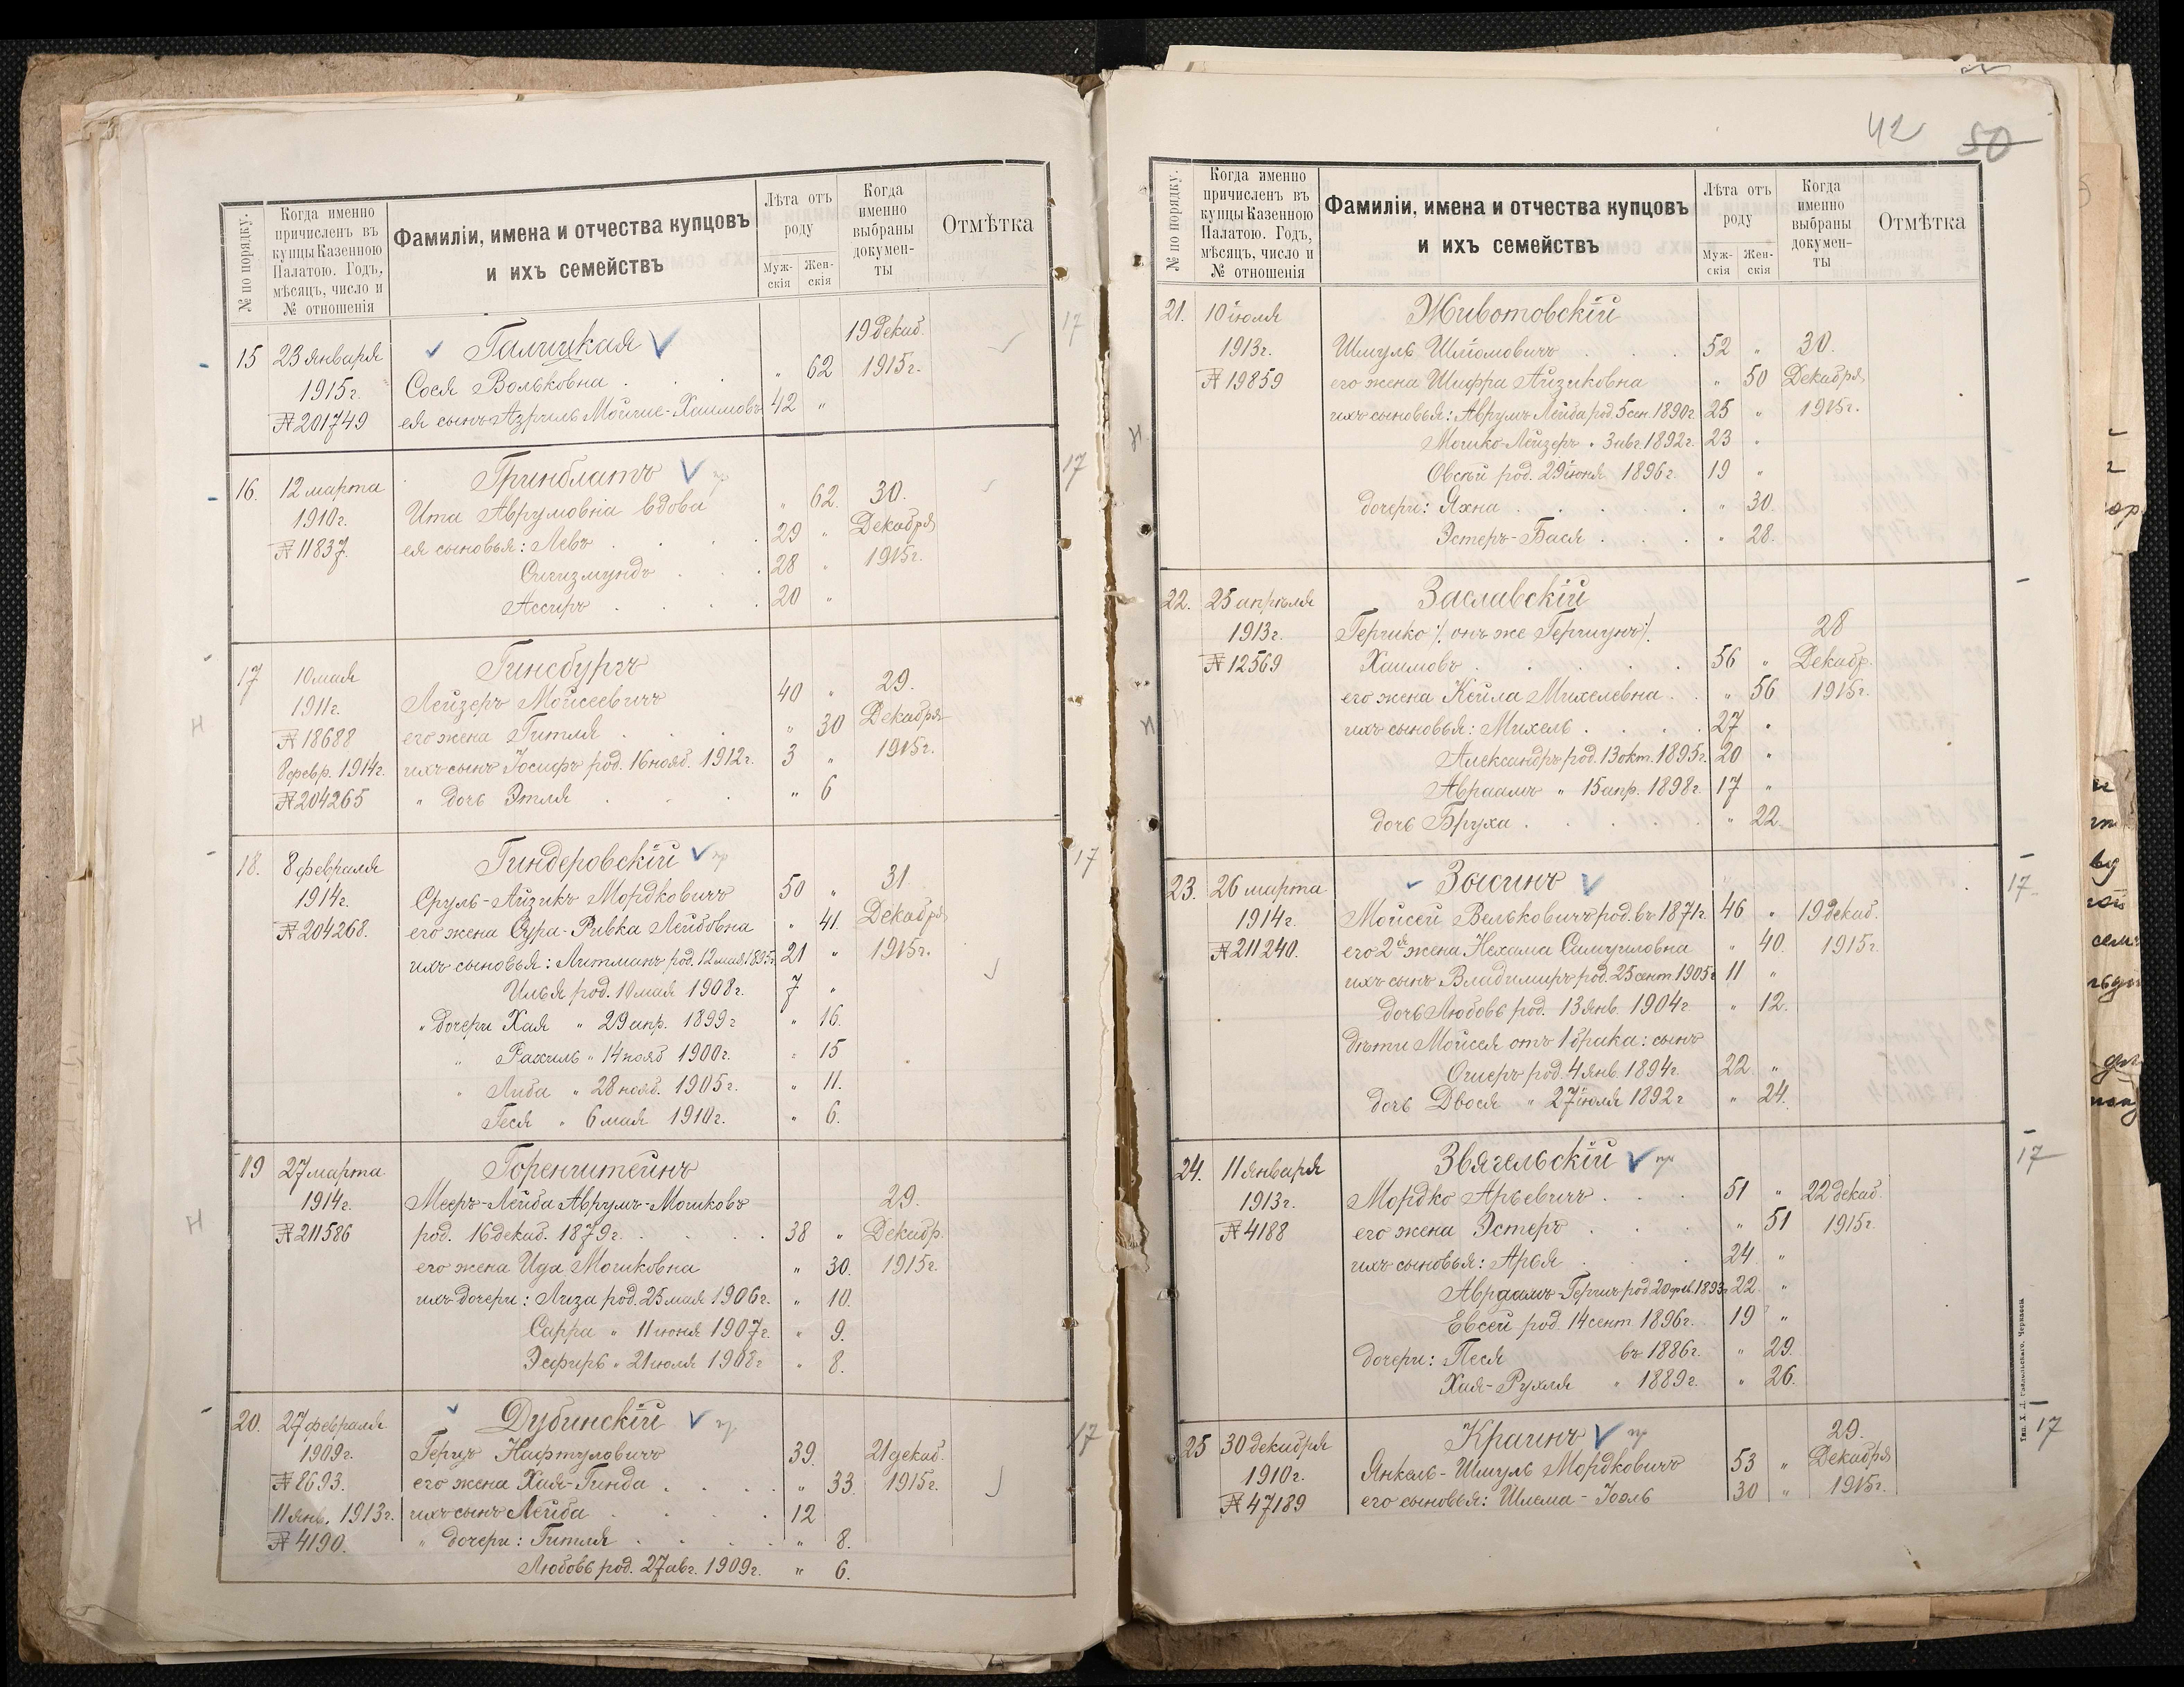 42 50
№ по порядку.
Когда именно
причисленъ въ
купцы Казенною
Палатою. Годъ,
мѣсяцъ, число и
№ отношенія
Фамиліи, имена и отчества купцовъ
и ихъ семействъ
Лѣта отъ
роду
Муж-
скія
Жен-
скія
Когда
именно
выбраны
докумен-
ты
Отмѣтка
Галицкая 19 декаб. 17
15 23 января
Сося Вольковна " 62 1915г.
1915г.
№ 201749 ея сынъ Азриль Мойше-Хаимовъ 42 "
Гринблатъ пр 17
16. 12 марта
Ита Аврумовна вдова " 62. 30.
1910г.
№ 11837. ея сыновья: Левъ 29 " Декабря
Сигизмундъ 28 " 1915г.
Ассиръ 20 "
Гинсбургъ
17 10 мая
Лейзеръ Мойсеевичъ 40 " 29.
1911г.
№ 18688 его жена Гитля " 30 Декабря
8 февр. 1914г. ихъ сынъ Іосифъ род. 16 нояб. 1912г. 3 " 1915г.
№ 204265 " дочь Этля " 6
Н
Гиндеровскій пр 17
18. 8 февраля
Сруль-Айзикъ Мордковичъ 50 " 31
1914г.
№ 204268. его жена Сура-Ривка Лейбовна " 41. Декабря
ихъ сыновья: Литманъ род. 12 мая 1895г. 21 " 1915г.
Илья род. 10 мая 1908г. 7 "
" дочери Хая " 29 апр. 1899г " 16.
" Рахиль " 14 нояб 1900г. " 15
" Либа " 28 нояб. 1905г. " 11.
Геся " 6 мая 1910г. " 6.
Горенштейнъ
19 27 марта
1914г. Мееръ-Лейба Аврумъ-Мошковъ 29.
№ 211586 род. 16 декаб. 1879г. 38 " Декабр.
Н
его жена Ида Мошковна " 30. 1915г.
ихъ дочери: Лиза род. 25 мая 1906г. " 10.
Сарра " 11 іюня 1907г. " 9.
Эсфирь " 21 іюля 1908г " 8.
Дубинскій пр. 17
20. 27 февраля
1909г. Герцъ Нафтуловичъ 39. 21 декаб.
№ 8693. его жена Хая-Гинда " 33. 1915г.
11 янв. 1913г. ихъ сынъ Лейба 12
№ 4190. " дочери: Гитля " 8.
Любовь род. 27 авг. 1909г. " 6.
№ по порядку.
Когда именно
причисленъ въ
купцы Казенною
Палатою. Годъ,
мѣсяцъ, число и
№ отношенія
Фамиліи, имена и отчества купцовъ
и ихъ семействъ
Лѣта отъ
роду
Муж-
скія
Жен-
скія
Когда
именно
выбраны
докумен-
ты
Отмѣтка
21. 10 іюля Животовскій
1913г. Шмуль Шлiомовичъ 52 " 30.
№ 19859 его жена Шифра Айзиковна " 50 Декабря
ихъ сыновья: Аврумъ Лейба род. 5 сен. 1890г. 25 " 1915г.
Н Мошко-Лейзеръ " 3 янв. 1892г. 23 "
Овсѣй род. 29 іюня 1896г. 19 "
дочери: Яхна " 30.
Эстеръ-Бася " 28.
22. 25 апрѣля Заславскій
1913г. Гершко /. онъ же Гершунъ /. 28
№ 12569 Хаимовъ 56 " Декабр.
его жена Кейла Михелевна " 56 1915г.
Н ихъ сыновья: Михель 27 "
Александръ род. 13 окт. 1895г. 20 "
Авраамъ " 15 апр. 1898г. 17 "
дочь Бруха " 22.
23. 26 марта Зысинъ 17
1914г. Мойсей Вельковичъ род. въ 1871г. 46 " 19 декаб.
№ 211240. его 2я жена Нехама Самуиловна " 40. 1915г.
ихъ сынъ Владимиръ род. 25 сент 1905г 11 "
дочь Любовь род. 13 янв. 1904г. " 12.
дѣти Мойсея отъ 1 брака: сынъ
Ошеръ род. 4 янв. 1894г. 22. "
дочь Двося " 27 іюля 1892г " 24.
24. 11 января Звягельскій пр 17
1913г. Мордко Арьевичъ 51 " 22 декаб.
№ 4188 его жена Эстеръ " 51 1915г.
ихъ сыновья: Арья 24 "
Авраамъ-Гершъ род 20 фев. 1893г 22 "
Евсей род. 14 сент. 1896г. 19 "
дочери: Песя въ 1886г. " 29.
Хая-Рухля " 1889г. " 26.
25 30 декабря Краинъ пр 29. 17
1910г. Янкель-Шмуль Мордковичъ 53 " Декабря
№ 47189 его сыновья: Шлема-Іоэль 30 " 1915г.